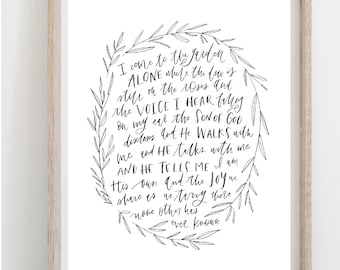 I come to the garden
ALONE while the dew is
still on the roses and
the VOICE I HEAR falling
on my ear the SON OF GOD
discloses AND HE WALKS with
me and HE talks with me
AND HE TELLS ME I am
His own and the JOY we
share as we tarry there
none other has
ever known